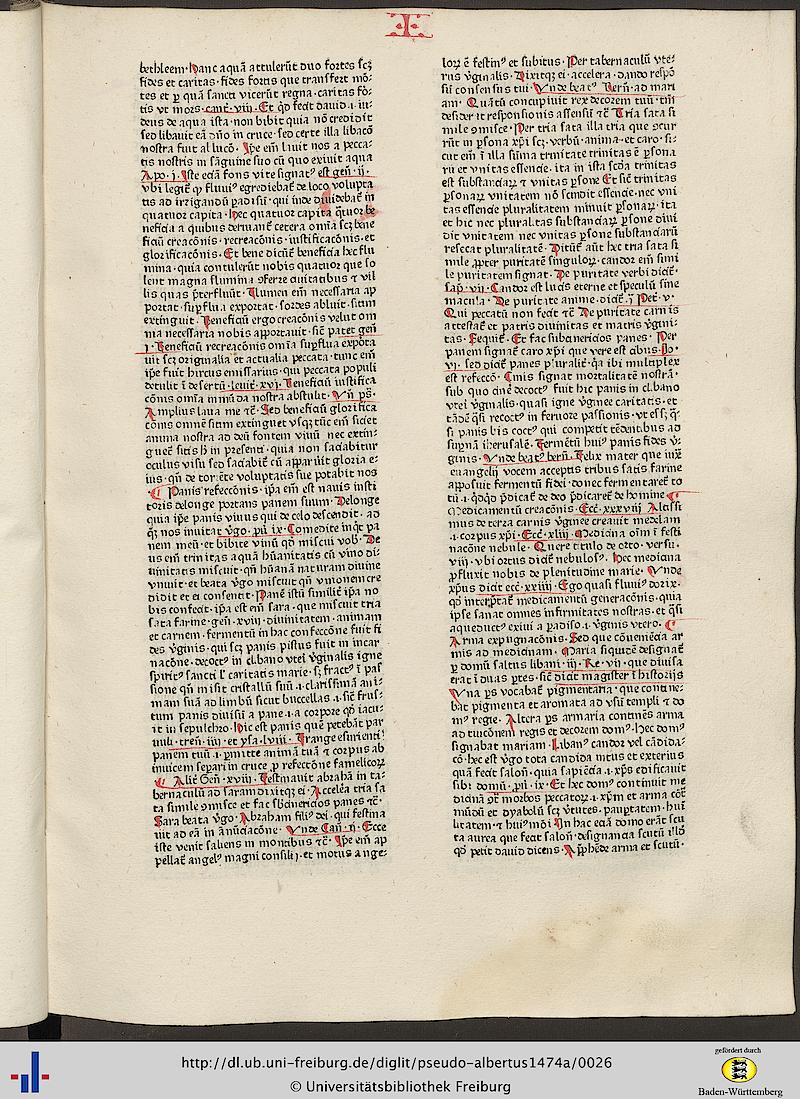 bethleem. Hanc aquā attulerūt duo fortes scꝫ
fides et caritas. fides fortis que transfert mō-
tes et ꝑ quā sancti vicerūt regna. caritas for-
tis vt mors. cant. viii. Et qd̄ fecit dauid. i. iu-
deus de aqua ista. non bibit quia nō credidit
sed libauit eā dn̄o in cruce. sed certe illa libacō
nostra fuit al luco. Ipe em̄ lauit nos a pecca-
tis nostris in sāguine suo cū quo exiuit aqua
Apo. i. Iste etiā fons vite signatᵉ est gen̄. ii.
vbi legit̄ ꝙ fluuiꝰ egrediebat̄ de loco volupta
tis ad irrigandū ꝑadisū. qui inde diuidebat̄ in
quatuor capita. hec quatuor capita q̄tuor be
neficia a quibus deriuant̄ cetera om̄ia scꝫ bene
ficiū creacōnis. recreacōnis. iustificacōnis. et
glorificacōnis. Et bene dicūt̄ beneficia hec flu
mina. quia contulerūt nobis quatuor que so
lent magna flumina ꝯferre ciuitatibus ⁊ vil
lis quas p̄terfluūt. Flumen em̄ necessaria ap
portat. suꝑflua exportat. sordes abluit. sitim
extinguit. Beneficiū ergo creacōnis velut om
nia necessaria nobis apportauit. sic̄ patet gen̄
i. Beneficiū recreacōnis om̄ia suꝑflua exporta
uit scꝫ originalia et actualia peccata. tunc em̄
ip̄e fuit hircus emissarius. qui peccata populi
detulit ī desertū. leuit. xvi. Beneficiū iustifica
cōnis om̄ia mūda nostra abstulit. Vn̄ ps̄.
Amplius laua me ⁊c̄. Sed beneficiū glorifica
cōnis omnē sitim extinguet vsqꝫ tūc em̄ siciet
anima nostra ad deū fontem viuū. nec extin-
guet̄ sitis h̄ in presenti. quia non saciabitur
oculus visu sed saciabit̄ cū apparuit gloria e-
ius. qn̄ de torēte voluptatis sue potabit nos
¶ Panis refeccōnis. ip̄a em̄ est nauis insti
toris delonge portans panem suum. Delonge
quia ip̄e panis viuus qui de celo descendit. ad
qꝫ nos inuitat v̄go. pu̅ ix. Comedite inqt̄ pa
nem meū. et bibite vinū qd̄ miscui vob̄. De
us em̄ trinitas aquā hūanitatis cū vino di-
uinitatis miscuit. qn̄ hūanā naturam diuine
vniuit. et beata v̄go miscuit qn̄ vnionem cre
didit et ei consensit. Panē istū similit̄ ip̄a no
bis confecit. ip̄a est em̄ sara. que miscuit tria
sata farine. gen̄. xviii. diuinitatem. animam
et carnem. fermentū in hac confeccōne fuit fi
des v̄ginis. qui scꝫ panis pistus fuit in incar
nacōne. decoctꝰ in clibano vtei v̄ginalis igne
spiritꝰ sancti l. caritatis marie. sꝫ fractꝰ ī pas
sione qn̄ misit cristallū suū. i. clarissimā ani-
mam suā ad limbū sicut buccellas. i. sic̄ frus-
tum panis diuisū a pane. i. a corpore qd̄ iacu-
it in sepulchro. hic est panis quē petebāt par
uuli. tren̄. iiii. et ysa. lviii. Frange esurienti
panem tuū. i. ꝑmitte animā tuā ⁊ corpus ab
inuicem separi in cruce ꝓ refectōne famelicoꝝ
¶ Alit̄ Gen̄. xviii. Festinauit abrahā in ta-
bernaculū ad saram dixitqꝫ ei. Accelēa tria sa
ta simile ꝯmisce et fac sb̄cinericios panes ⁊c̄.
Sara beata v̄go. Abraham filiꝰ dei. qui festina
uit ad eā in ānūciacōne. Vnde Can̄. ii. Ecce
iste venit saliens in montibus ⁊c̄. Ipe em̄ ap
pellat̄ angelꝰ magni consilij. et motus ange-
loꝝ ē festinꝰ et subitus. Per tabernaculū vte-
rus v̄ginalis. Dixitqꝫ ei. accelera. dando respō
sū consensus tui. Vnde beatꝰ Bern̄. ad mari
am. Quātū concupiuit rex decorem tuū. tm̄
desiderat responsionis assensū ⁊c̄. Tria sata si
mile ꝯmisce. Per tria sata illa tria que ꝯcur
rūt in ꝑsona xp̄i scꝫ. verbū. anima. et caro. si-
cut em̄ ī illa sūma trinitate trinitas ē ꝑsona
rū et vnitas essencie. ita in ista scd̄a trinitas
est substanciaꝝ ⁊ vnitas ꝑsone. Et sic̄ trinitas
ꝑsonaꝝ vnitatem nō scindit essencie. nec vni
tas essencie pluralitatem minuit ꝑsonaꝝ. ita
et hic nec pluralitas substanciaꝝ ꝑsone diui
dit vnitatem nec vnitas ꝑsone substanciarū
resecat pluralitatē. Dicūt̄ aūt hec tria sata si
mile ꝓpter puritatē singuloꝝ. candor em̄ simi
le puritatem signat. De puritate verbi dicit̄
sap̄. vii. Candor est lucis eterne et speculū sine
macula. De puritate anime. dicit̄. i. Pet̄. v.
Qui peccatū non fecit ⁊c̄. De puritate carnis
attestat̄ et patris diuinitas et matris v̄gini-
tas. Sequit̄. Et fac subcinericios panes. Per
panem signat̄ caro xp̄i que vere est cibus. Jo.
vi. sed dicit̄ panes pluralit̄. qa ibi multiplex
est refeccō. Cinis signat mortalitatē nostrā.
sub quo cine̅ decoctꝰ fuit hic panis in clibano
vtei v̄ginalis. quasi igne v̄ginee caritatis. et
tādē q̄si recoctꝰ in feruore passionis. vt es̄sꝫ q̄-
si panis bis coctꝰ qui competit tēdentibus ad
suꝑnā iherusalē. Fermētū huiꝰ panis fides v̄-
ginis. Vnde beatꝰ bern̄. Felix mater que iux̄
euangelij vocem acceptis tribus satis farine
apposuit fermentū fidei. donec fermentaret̄ to
tū. i. qd̄qd̄ p̄dicat̄ de deo p̄dicaret̄ de homine ¶
Medicamentū creacōnis. Ecc̄. xxxviij. Altissi
mus de terra carnis v̄ginee creauit medelam
.i. corpus xp̄i. Ecc̄. xliij. Medicina oīm ī festi
nacōne nebule. Quere titulo de orto. versu.
viij. vbi ortus dicit̄ nebulosꝰ. hec medicina
ꝓfluxit nobis de plenitudine marie. Vnde
xp̄us dicit ecc̄. xxiiij. Ego quasi fluuiꝰ dorix.
qd̄ interp̄tat̄ medicamentū generacōnis. quia
ipse sanat omnes infirmitates nostras. et q̄si
aqueductꝰ exiui a ꝑadiso. i. v̄ginis vtero. ¶
Arma expugnacōnis. Sed que cōueniēcia ar
mis ad medicinam. Maria siquidē designat̄
ꝑ domū saltus libani. iij. Re. vii. que diuisa
erat ī duas ꝑtes. sic̄ dicit magister ī historijs
Vna ꝑs vocabat̄ pigmentaria. que contine-
bat pigmenta et aromata ad vsū templi ⁊ do
mꝰ regie. Altera ꝑs armaria continēs arma
ad tuicōnem regis et decorem domꝰ. hec domꝰ
signabat mariam. Libanꝰ candor vel cādida-
cō. hec est v̄go tota candida intus et exterius
quā fecit salon̄. quia sapiēcia. i. xp̄s edificauit
sibi domū. pu̅. ix. Et hec domꝰ continuit me
dicinā ꝯt̄ morbos peccatoꝝ. i. xp̄m et arma cōt̄
mūdū et dyabolū scꝫ v̄tutes. pauꝑtatem. hūi
litatem. ⁊ huiꝰmōi. In hac eciā domo erāt scu
ta aurea que fecit salon̄. designancia scutū illd̄
qd̄ petit dauid dicens. App̄hēde arma et scutū.
http://dl.ub.uni-freiburg.de/diglit/pseudo-albertus1474a/0026
© Universitätsbibliothek Freiburg
gefördert durch
Baden-Württemberg